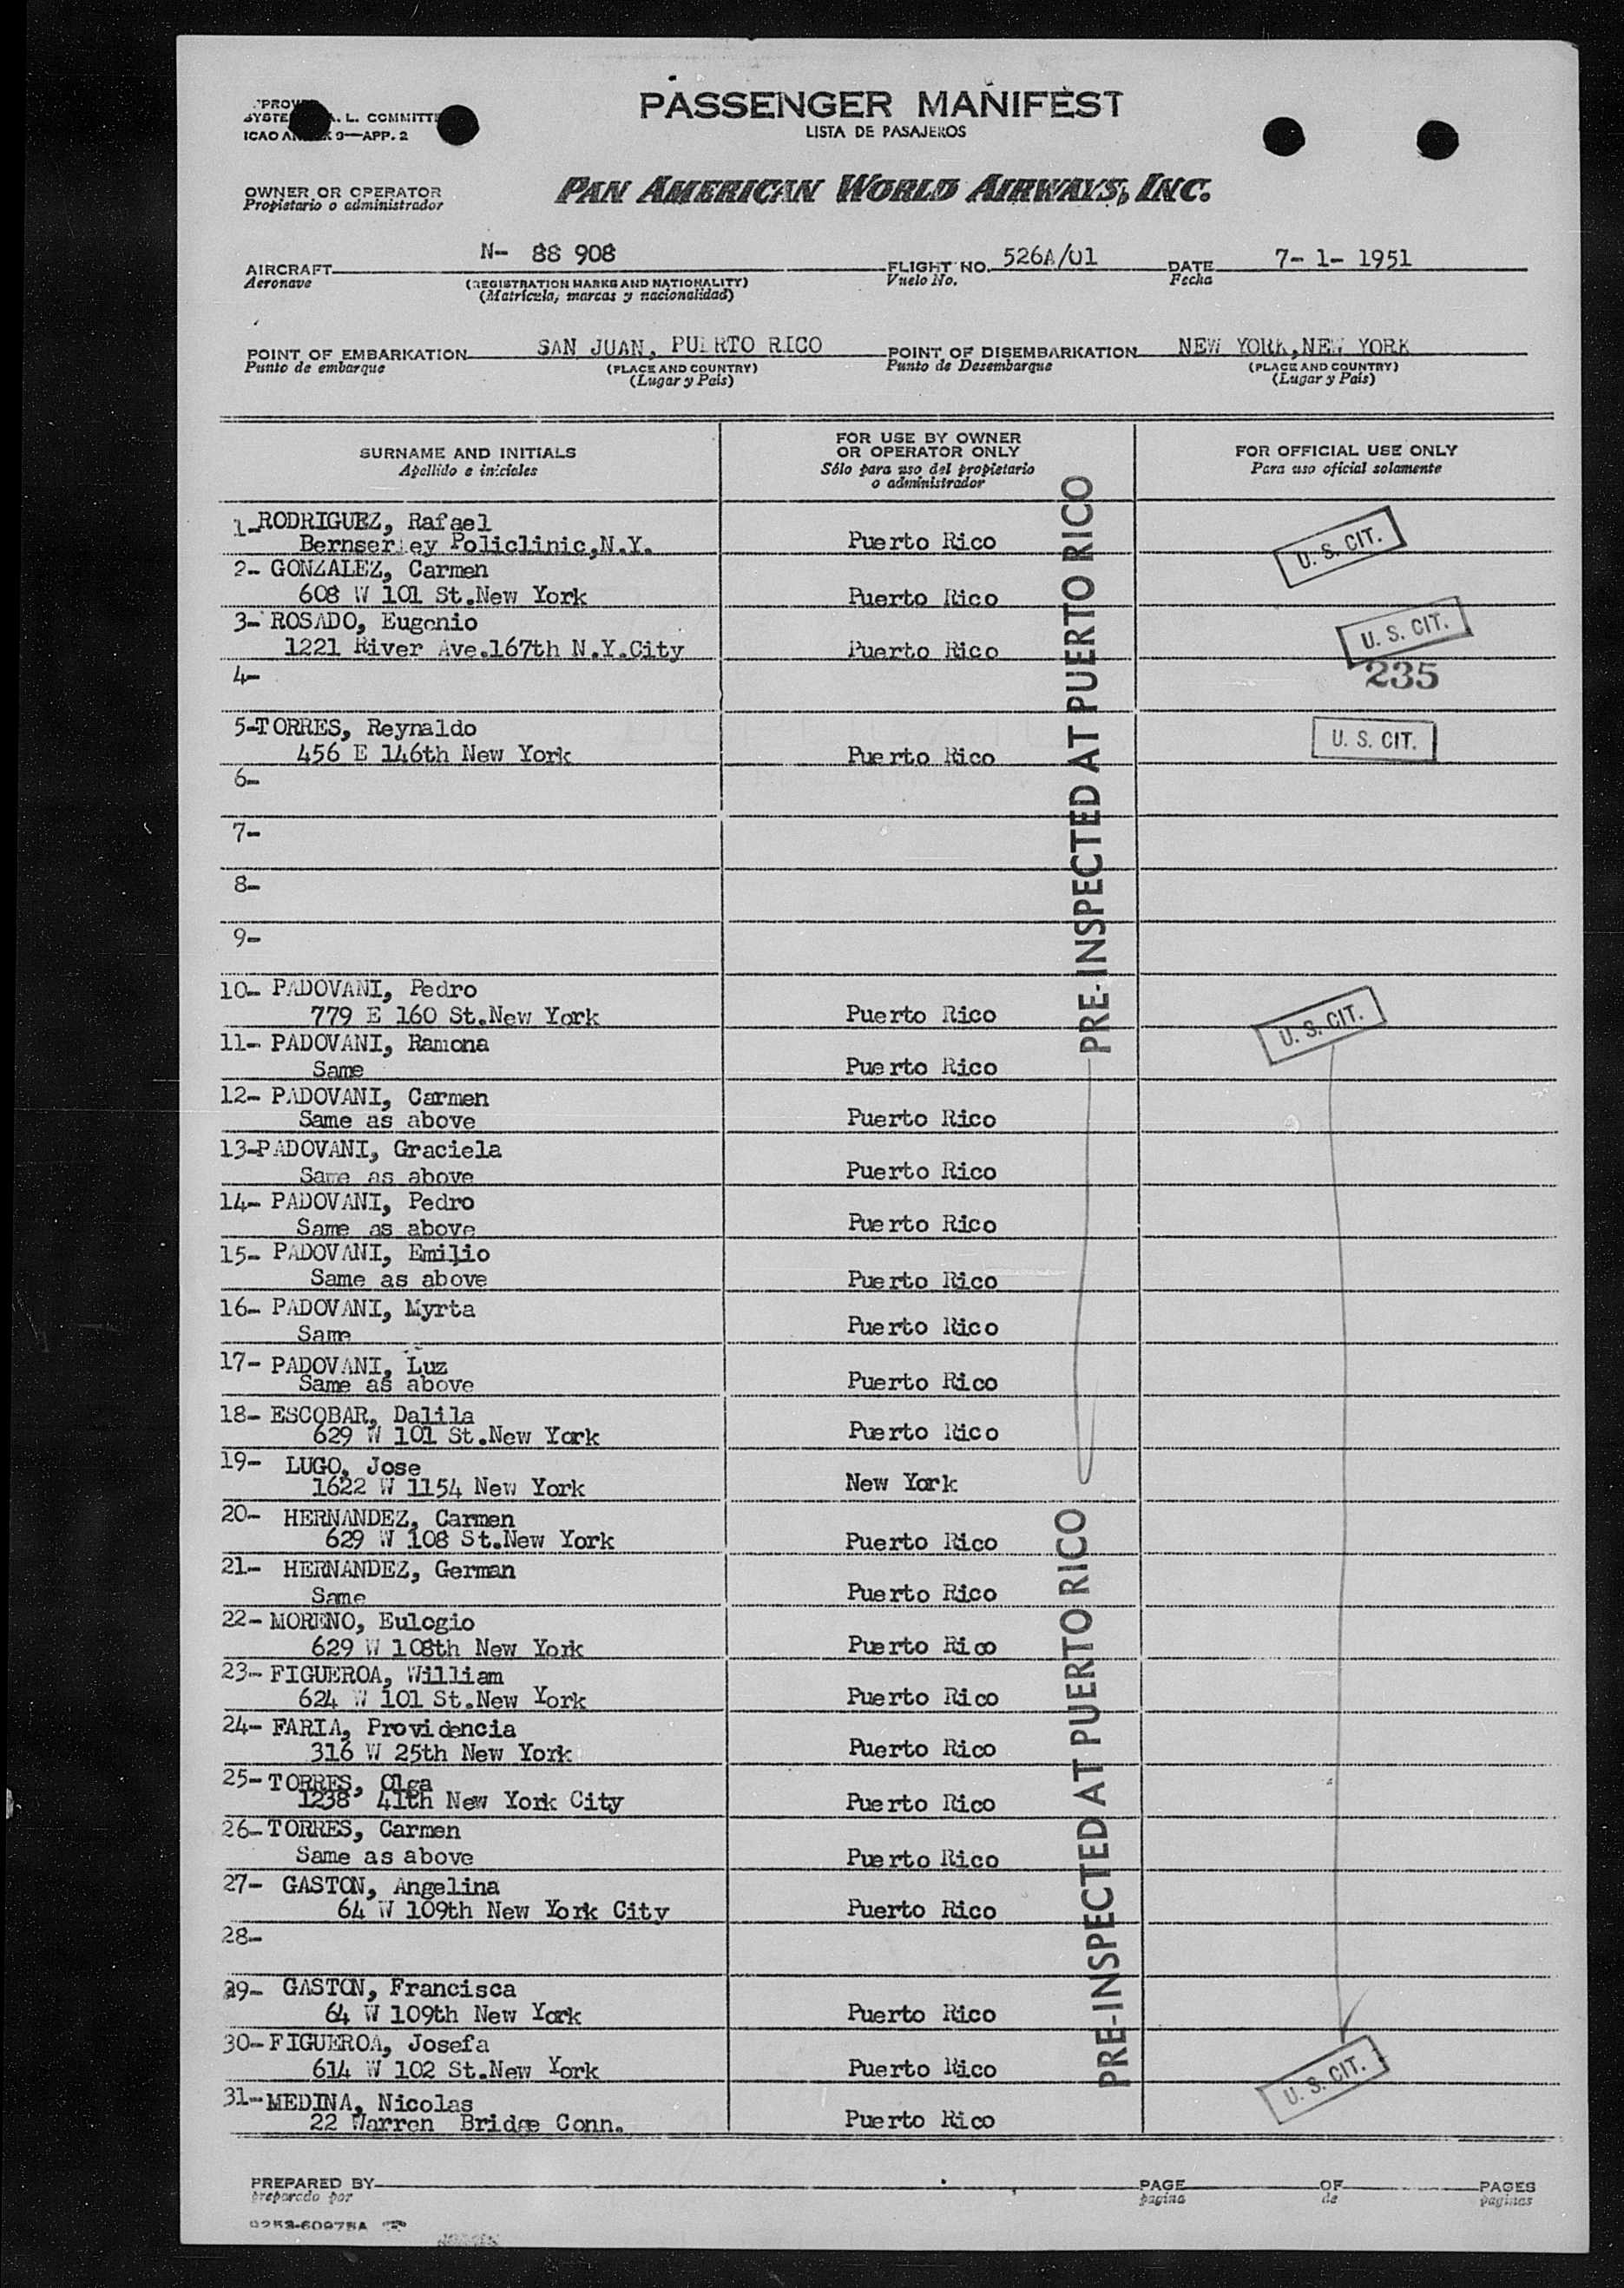 PASSENGER MANIFEST
LISTA DE PASAJEROS
L. COMMITT
ICAO 9—APP. 2
OWNER OR OPERATOR
Propietario o administrador
PAN AMERICAN WORLD AIRWAYS, INC.
AIRCRAFT N- 88 908 FLIGHT NO. 526A/01 DATE 7- 1- 1951
Aeronave (REGISTRATION MARKS AND NATIONALITY) Vuelo No. Fecha
(Matrícula, marcas y nacionalidad)
POINT OF EMBARKATION SAN JUAN, PUERTO RICO POINT OF DISEMBARKATION NEW YORK, NEW YORK
Punto de embarque (PLACE AND COUNTRY) Punto de Desembarque (PLACE AND COUNTRY)
(Lugar y País) (Lugar y País)
SURNAME AND INITIALS
Apellido e iniciales
FOR USE BY OWNER
OR OPERATOR ONLY
Sólo para uso del propietario
o administrador
FOR OFFICIAL USE ONLY
Para uso oficial solamente
1-RODRIGUEZ, Rafael
Policlinic,N.Y. Puerto Rico U. S. CIT.
2- GONZALEZ, Carmen
608 W 101 St.New York Puerto Rico
3- ROSADO, Eugenio
1221 River Ave.167th N.Y.City Puerto Rico U. S. CIT.
4- 235
5-TORRES, Reynaldo
456 E 146th New York Puerto Rico U. S. CIT.
6-
7-
8-
9-
PRE-INSPECTED AT PUERTO RICO
10- PADOVANI, Pedro
779 E 160 St.New York Puerto Rico U. S. CIT.
11- PADOVANI, Ramona
Same Puerto Rico
12- PADOVANI, Carmen
Same as above Puerto Rico
13-PADOVANI, Graciela
Same as above Puerto Rico
14- PADOVANI, Pedro
Same as above Puerto Rico
15- PADOVANI, Emilio
Same as above Puerto Rico
16- PADOVANI, Myrta
Same Puerto Rico
17- PADOVANI, Luz
Same as above Puerto Rico
18- ESCOBAR, Dalila
629 W 101 St.New York Puerto Rico
19- LUGO, Jose
1622 W 1154 New York New York
20- HERNANDEZ, Carmen
629 W 108 St.New York Puerto Rico
21- HERNANDEZ, German
Same Puerto Rico
22- MORENO, Eulogio
629 W 108th New York Puerto Rico
23- FIGUEROA, William
624 W 101 St.New York Puerto Rico
24- FARIA, Providencia
316 W 25th New York Puerto Rico
25- TORRES, Olga
1238 41th New York City Puerto Rico
26-TORRES, Carmen
Same as above Puerto Rico
27- GASTON, Angelina
64 W 109th New York City Puerto Rico
28-
29- GASTON, Francisca
64 W 109th New York Puerto Rico
30-FIGUEROA, Josefa
614 W 102 St.New York Puerto Rico
PRE-INSPECTED AT PUERTO RICO
U. S. CIT.
31-MEDINA, Nicolas
22 Warren Bridge Conn. Puerto Rico
PREPARED BY PAGE OF PAGES
preparado por pagina de paginas